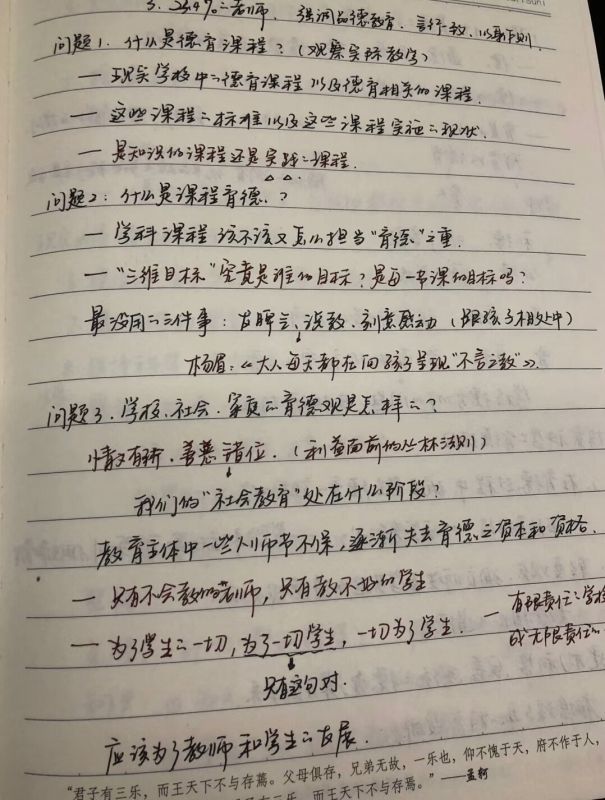 3. 23.4%的老师,强调品德教育、言行一致、以身作则.
问题1. 什么是德育课程?(观察实际教学)
— 现实学校中的德育课程以及德育相关的课程.
— 这些课程的标准以及这些课程实施的现状.
— 是知识的课程还是实践的课程.
问题2:什么是课程育德?
— 学科课程该不该又怎么担当“育德”之重.
— “三维目标”究竟是谁的目标?是每一节课的目标吗?
最没用的三件事:发脾气、说教、刻意感动(跟孩子相处中)
杨眉:《大人每天都在向孩子呈现“不言之教”》.
问题3. 学校、社会、家庭的育德观是怎样的?
情义有价、善恶错位.(利益面前的丛林法则)
我们的“社会教育”处在什么阶段?
教育主体中一些人师节不保,逐渐失去育德之资本和资格.
— 只有不会教的老师,只有教不好的学生
— 为了学生的一切,为了一切学生,一切为了学生.
— 有限责任的学校
成无限责任的
只有这句对.
应该为了教师和学生的发展.
“君子有三乐,而王天下不与存焉。父母俱存,兄弟无故,一乐也,仰不愧于天,俯不怍于人,
而王天下不与存焉。”——孟轲